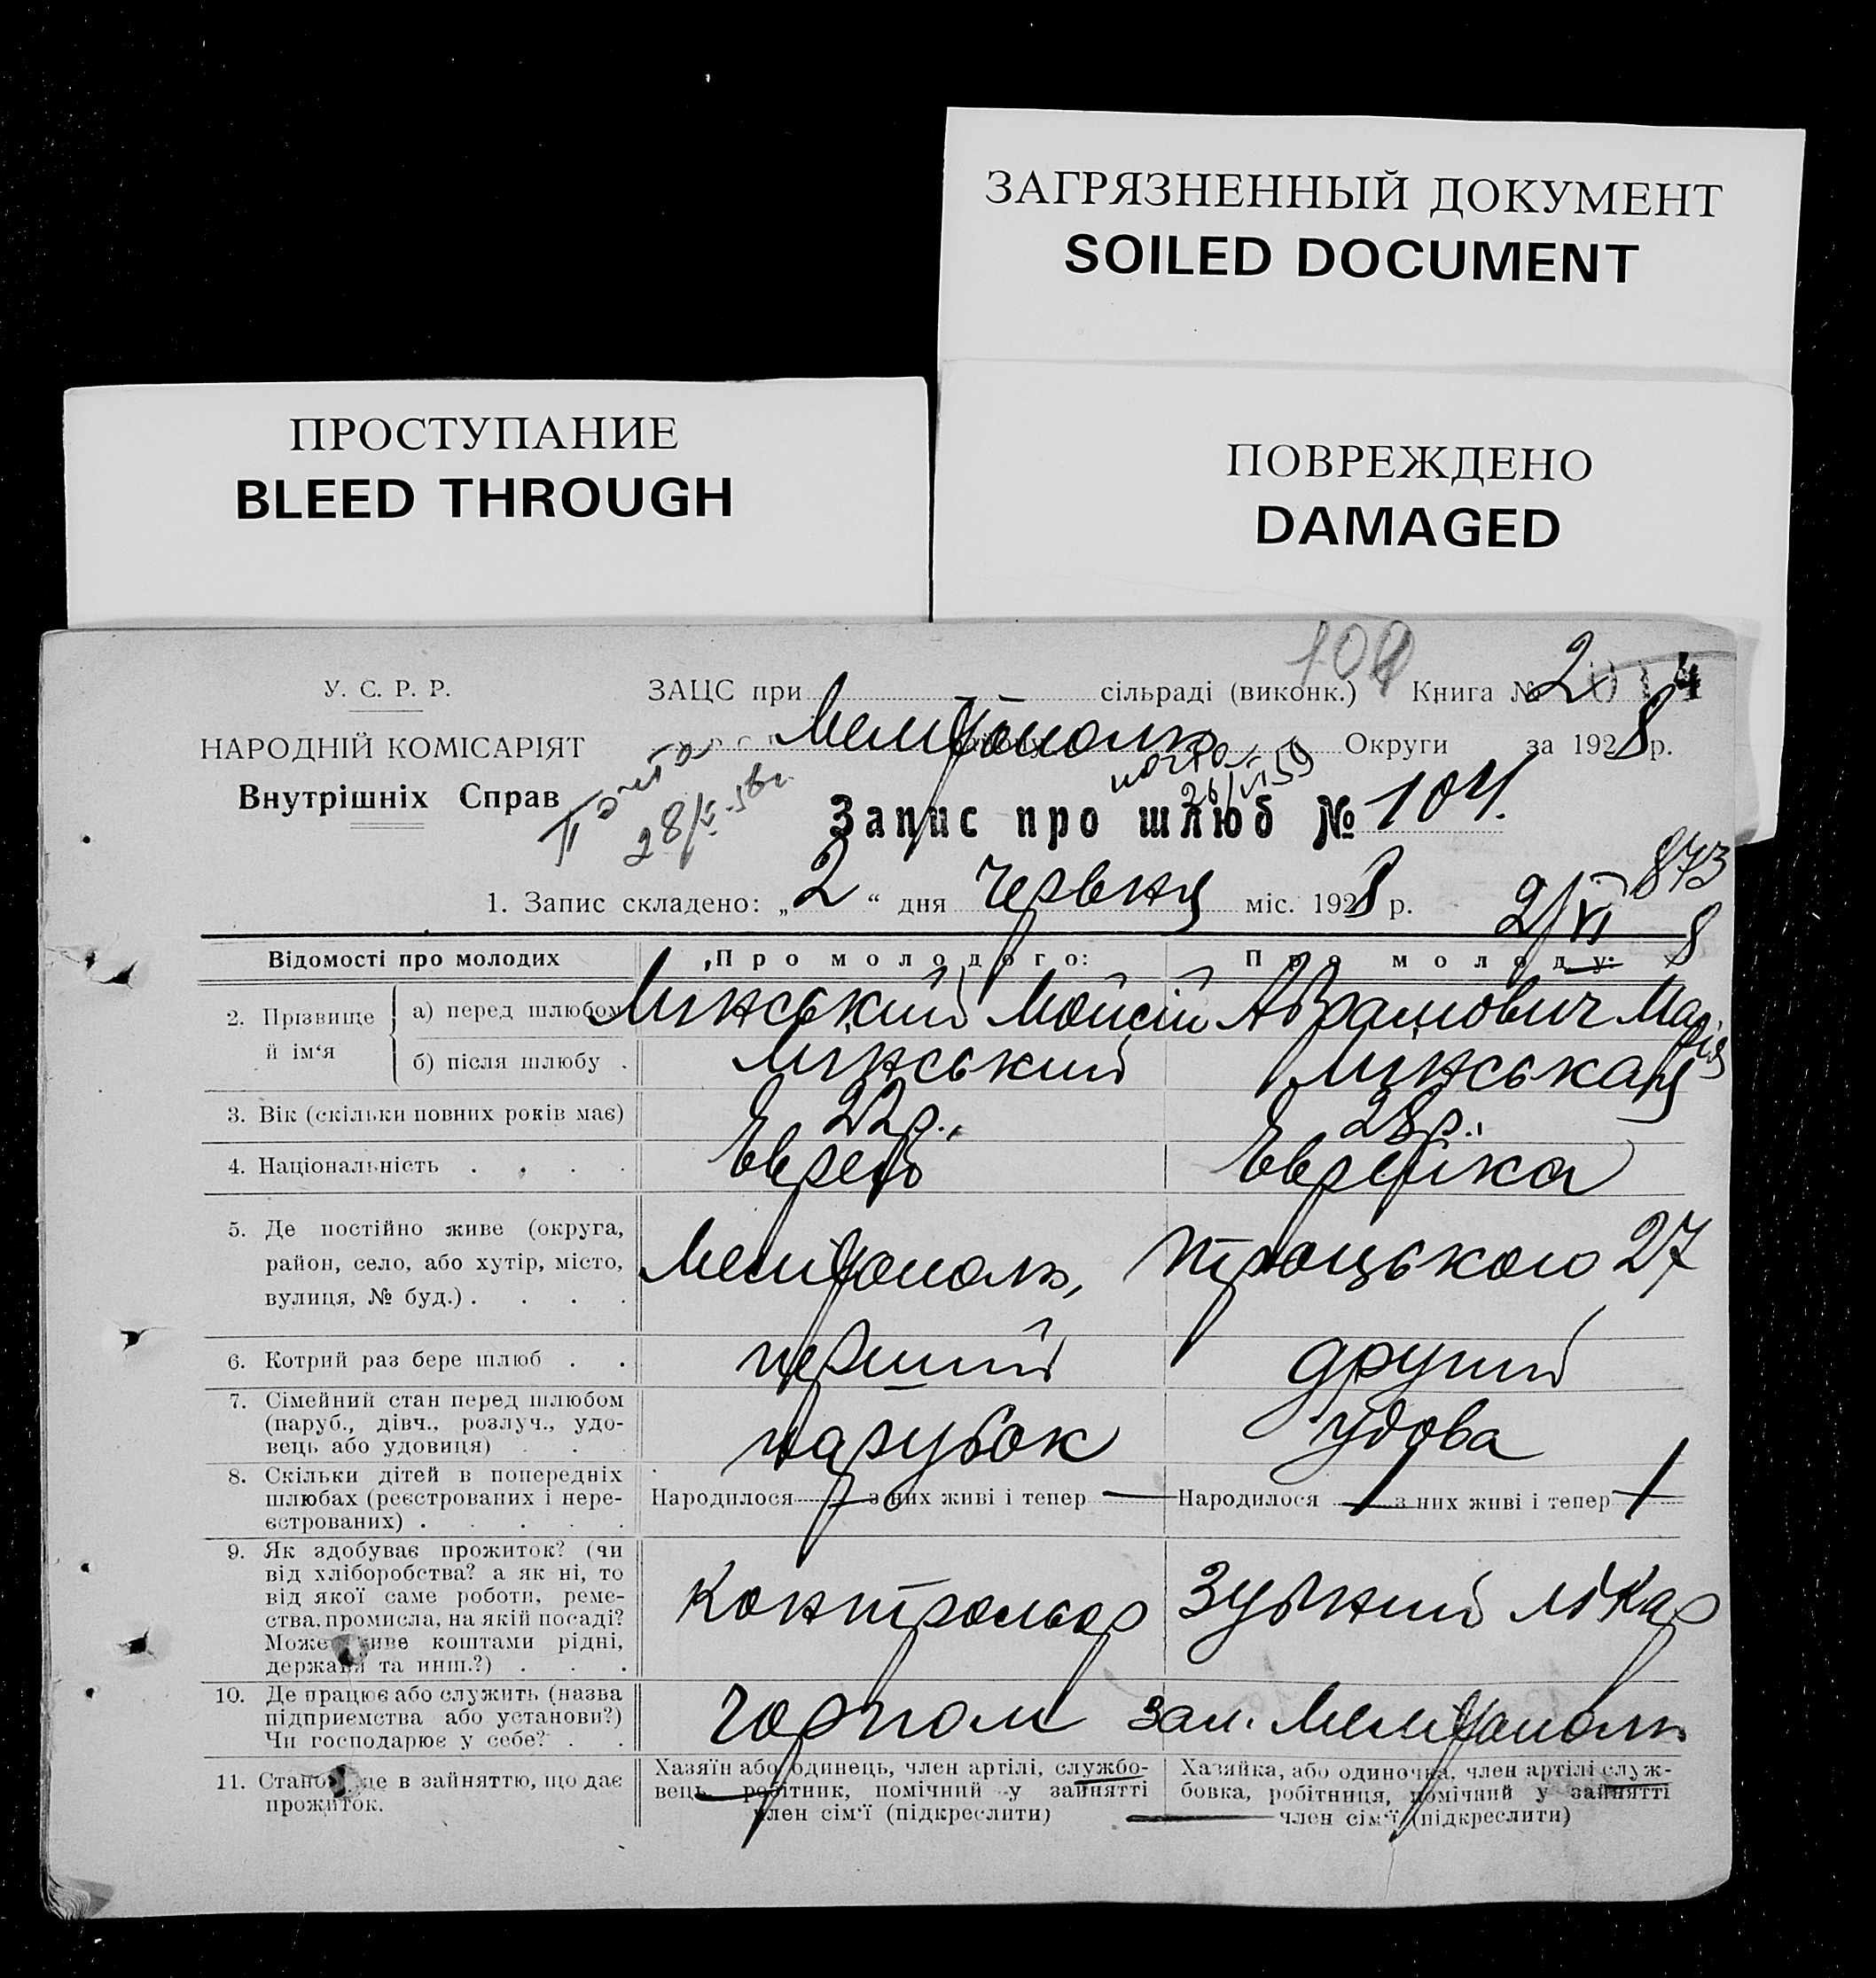 ЗАГРЯЗНЕННЫЙ ДОКУМЕНТ
SOILED DOCUMENT
ПРОСТУПАНИЕ
BLEED THROUGH
ПОВРЕЖДЕНО
DAMAGED
104
У. С. Р. Р.
ЗАЦС при сільраді (виконк.) Книга № 2
НАРОДНІЙ КОМІСАРІЯТ
Мелітополь Округи за 1928 р.
Внутрішніх Справ
Запис про шлюб № 104.
873
1. Запис складено: „2“ дня Червня міс. 1928 р.
2/VI 8
Відомості про молодих
Про молодого:
Про молоду:
2. Прізвище й ім‘я
а) перед шлюбом
Мінський Мойсій
Абрамович Марія
б) після шлюбу .
Мінський
Мінська
3. Вік (скільки повних років має)
22р.,
28р.,
4. Національність . . . .
Еврей
Еврейка
5. Де постійно живе (округа,
район, село, або хутір, місто,
вулиця, № буд.) . . . .
Мелітополь, Троцького 27
6. Котрий раз бере шлюб . .
перший
другий
7. Сімейний стан перед шлюбом
(паруб., дівч., розлуч., удо-
вець або удовиця) . . .
парубок
Удова
8. Скільки дітей в попередніх
шлюбах (реєстрованих і нере-
єстрованих) . . . . .
Народилося — з них живі і тепер —
Народилося 1 з них живі і тепер 1
9. Як здобуває прожиток? (чи
від хліборобства? а як ні, то
від якої саме роботи, реме-
ства, промисла, на якій посаді?
Може живе коштами рідні,
держави та инш.?) . . .
Контрольор
Зубний лікар
10. Де працює або служить (назва
підприємства або установи?)
Чи господарює у себе? . .
Горпом
зал. Мелітополь
11. Становище в зайняттю, що дає
прожиток.
Хазяїн або одинець, член артілі, службо-
вець, робітник, помічний у зайнятті
член сім‘ї (підкреслити)
Хазяйка, або одиночка, член артілі служ-
бовка, робітниця, помічний у зайнятті
член сім‘ї (підкреслити)